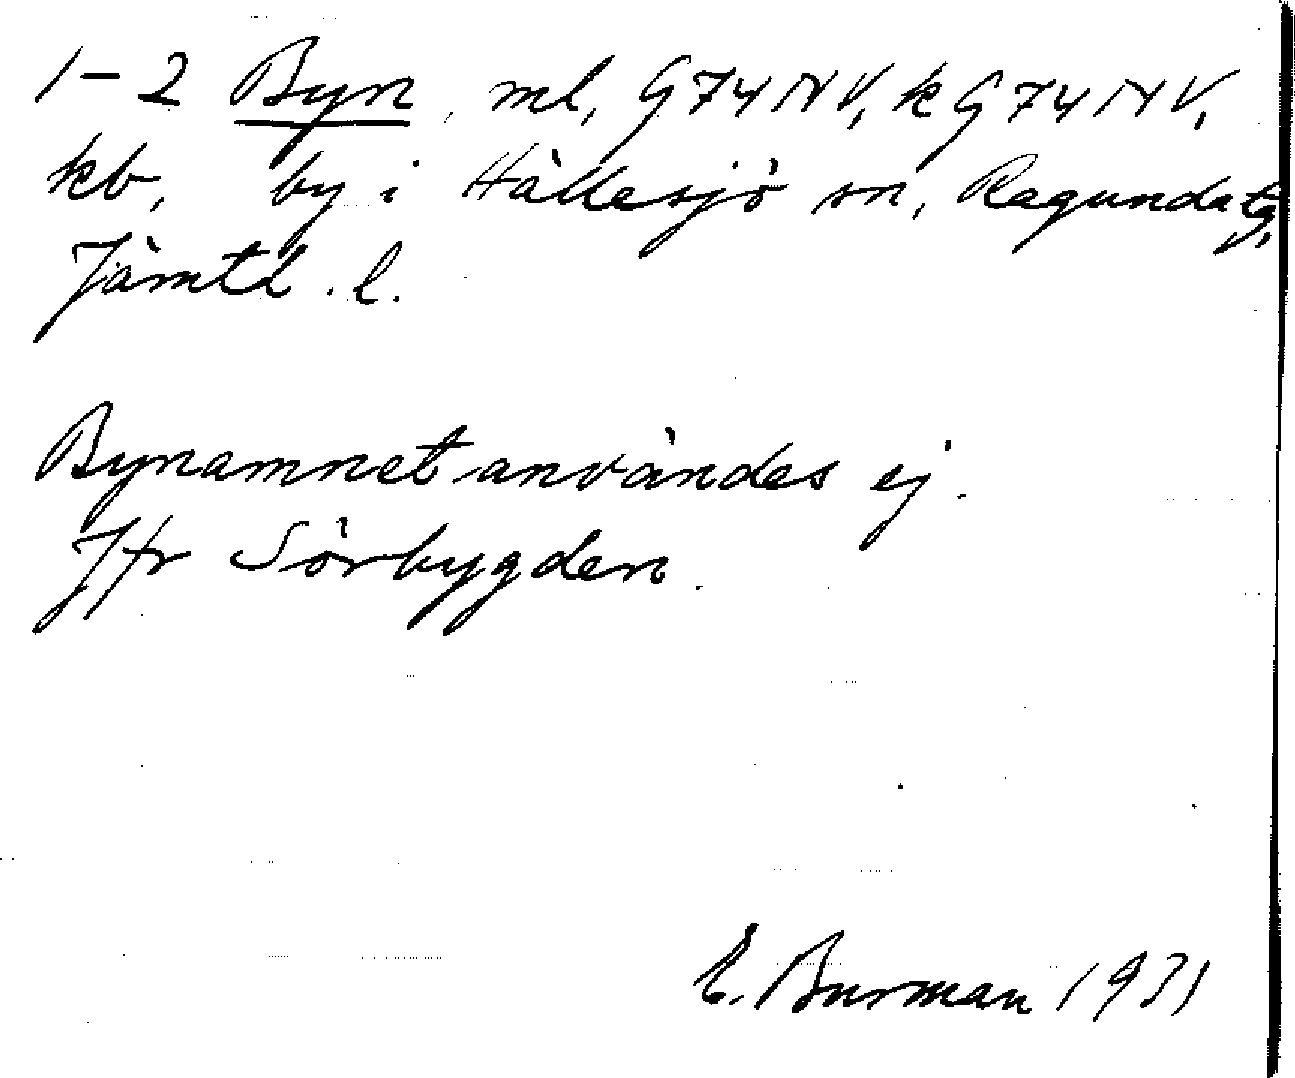 1-2 Byn, ml, G74NV, k G74NV,
kb, by i Hällesjö sn, Ragunda tg,
Jämtl. l.
Bynamnet användes ej.
Jfr Sörbygden.
E. Burman 1931